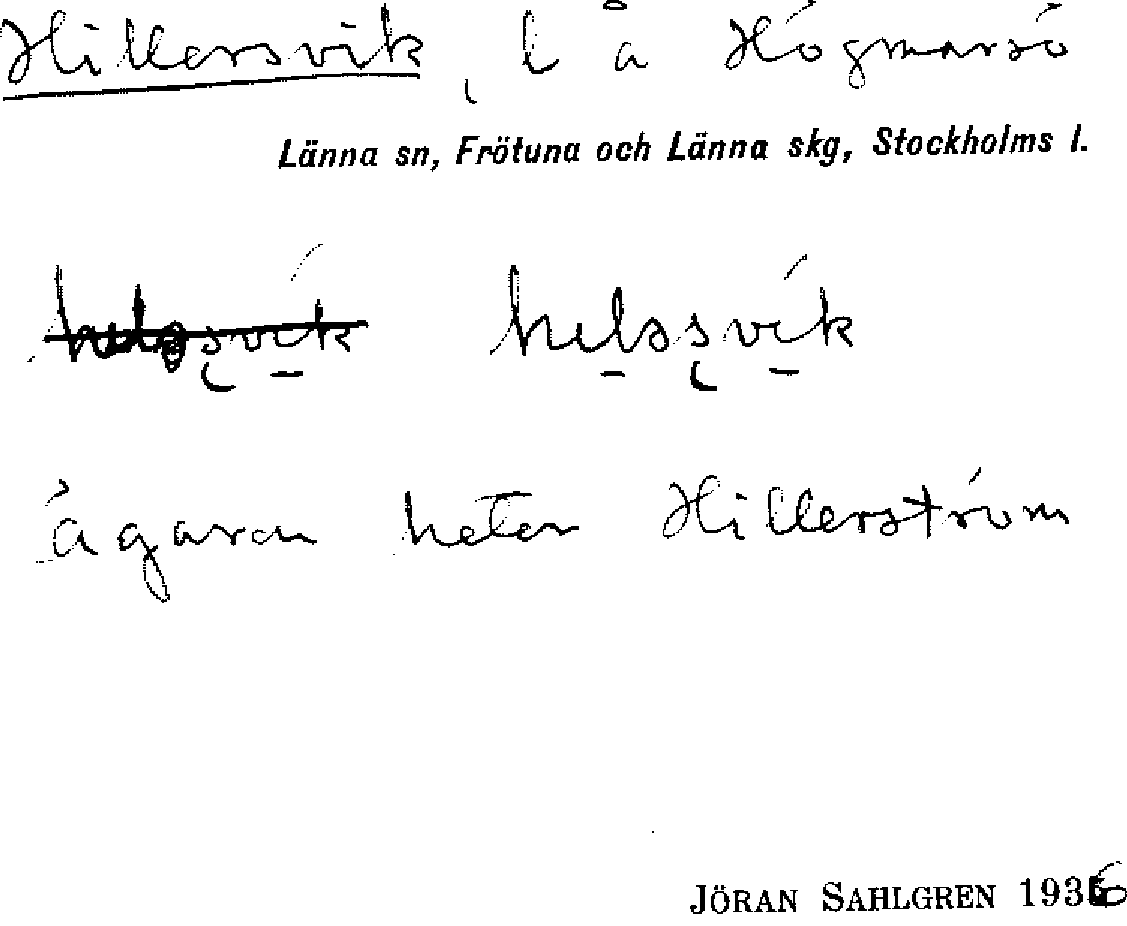 Hillersvik, l å Högmarsö
Länna sn, Frötuna och Länna skg, Stockholms l.
ägaren heter Hillerström
JÖRAN SAHLGREN 1936